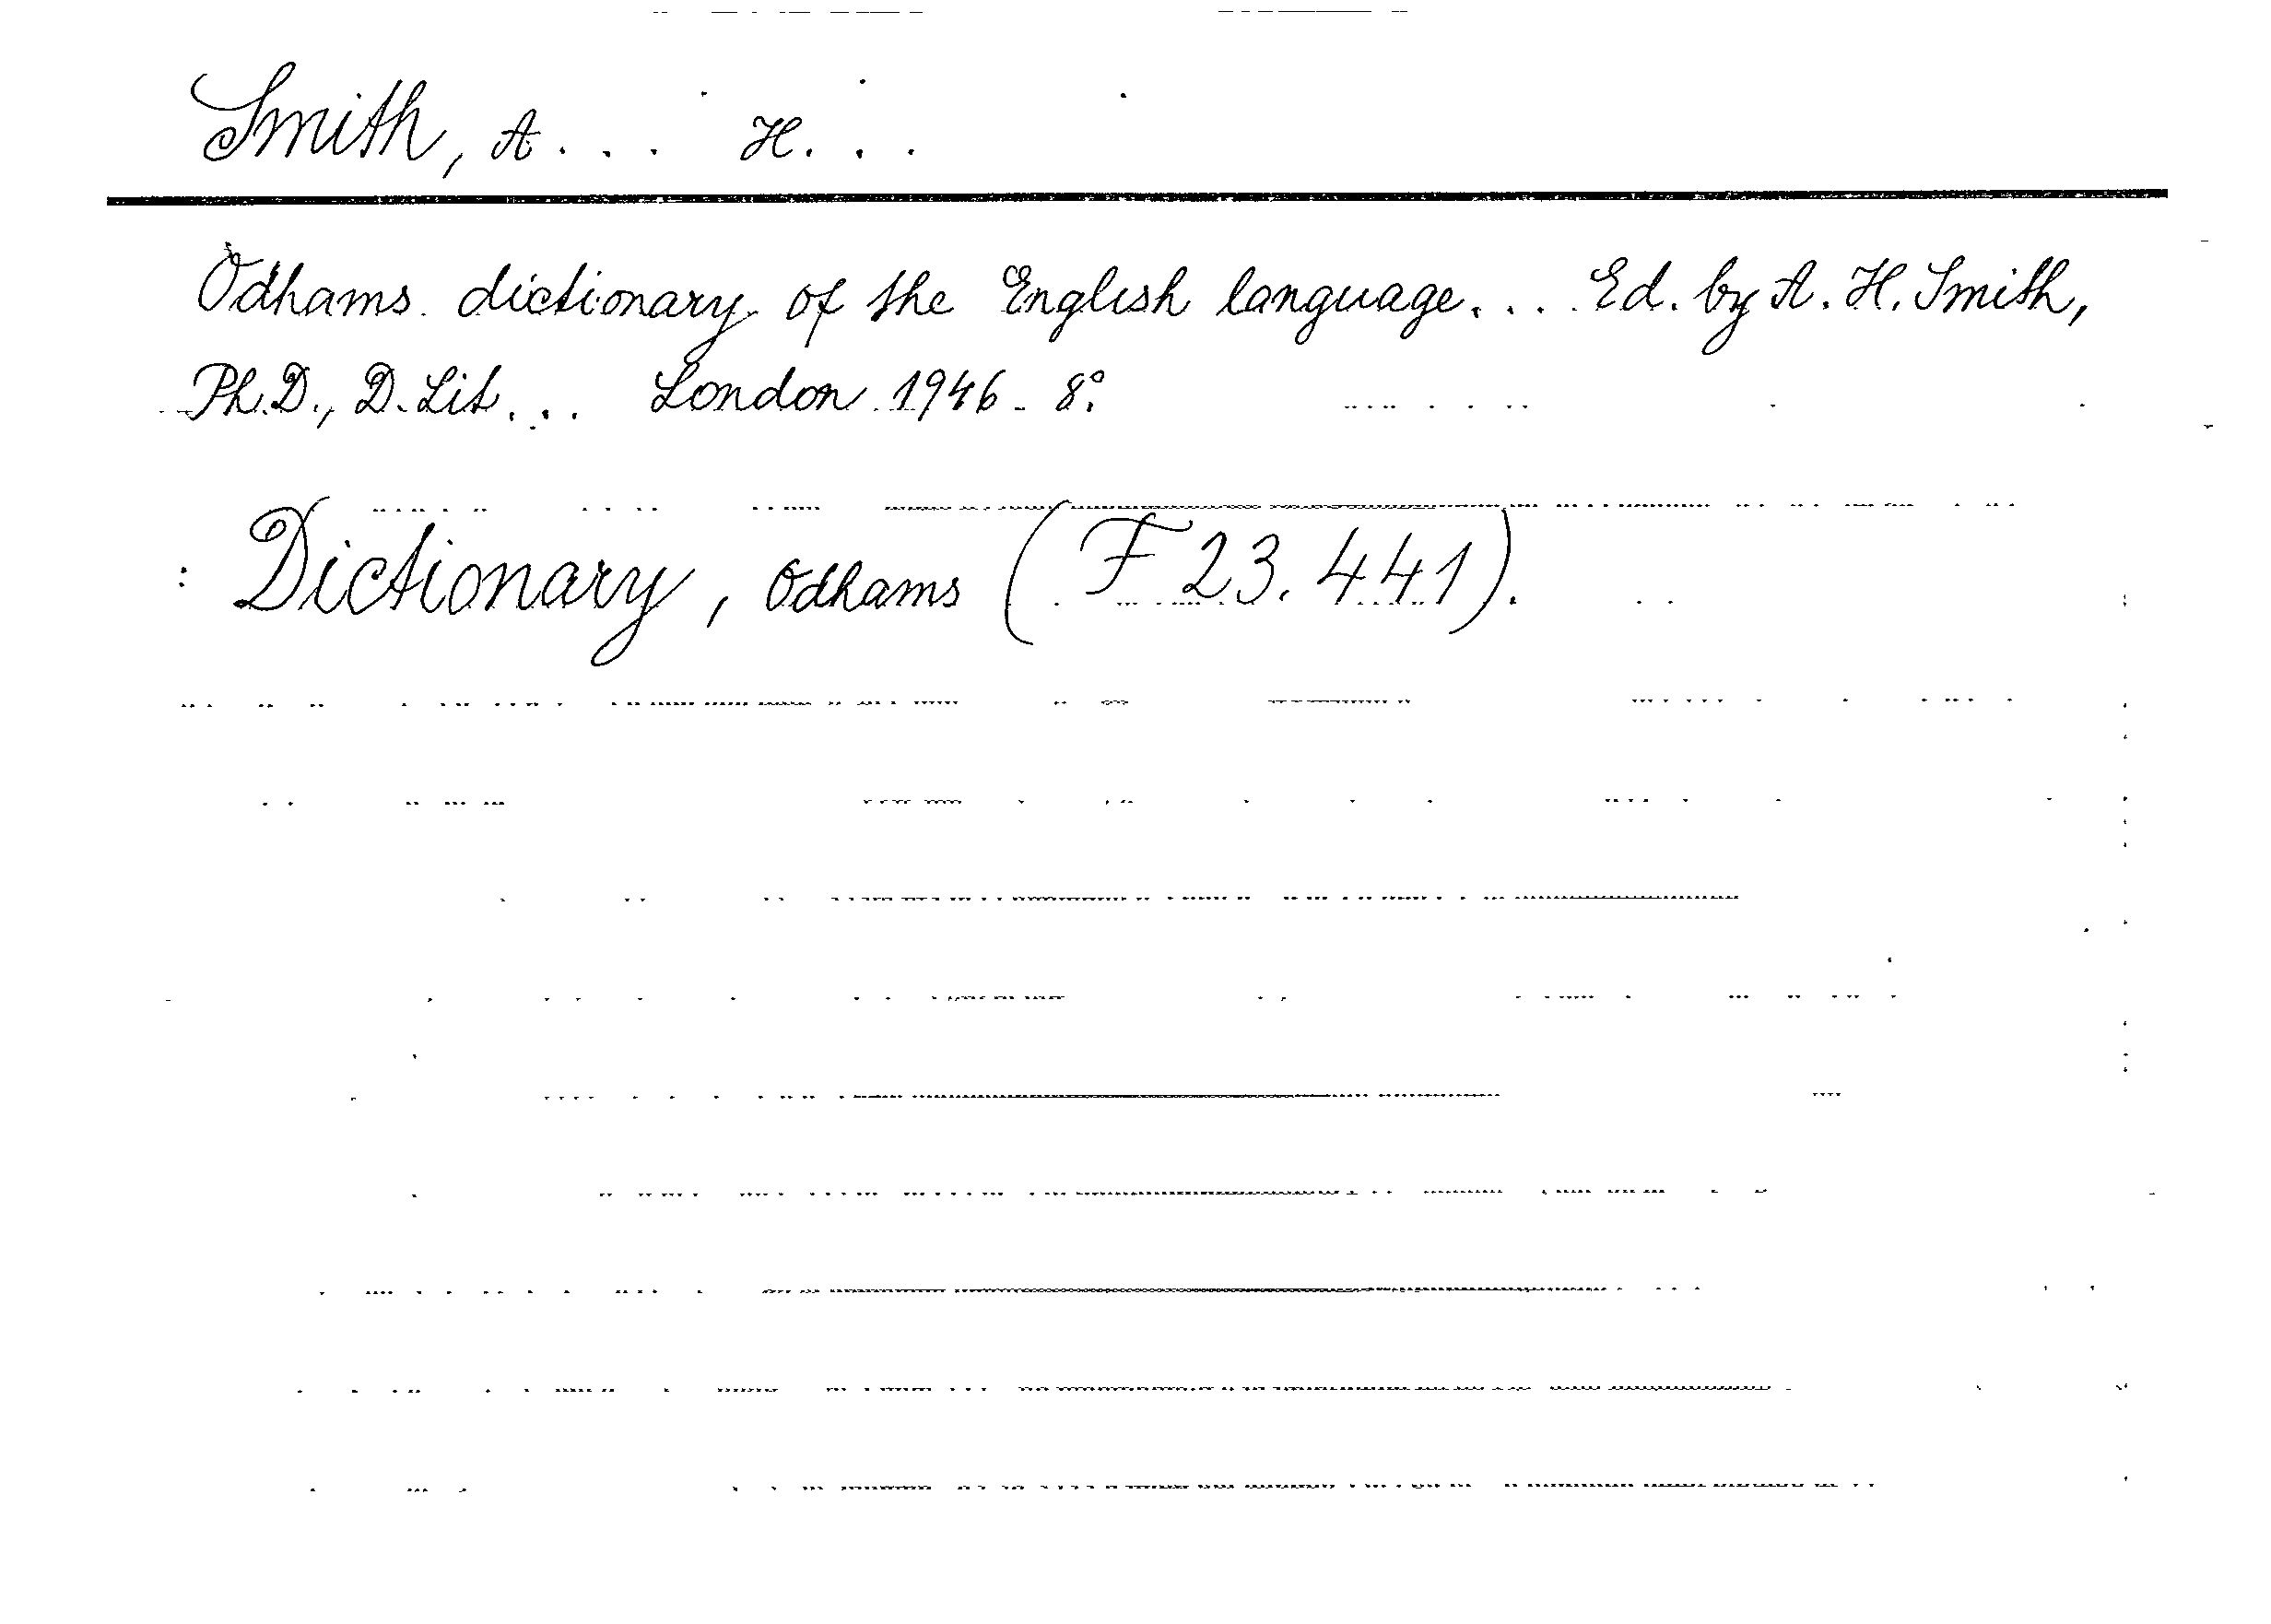 Smith, A... H...
Odhams dictionary of the English language... Ed. by A. H. Smith,
Ph.D., D. Lit... London 1946. 8°.
: Dictionary, Odhams (F 23.441).